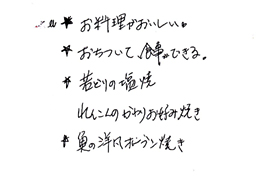 ★ お料理がおいしい。
★ おちついて、食事ができる。
★ 若どりの塩焼
れんこんのかわりお好み焼き
★ 魚の洋風オーブン焼き